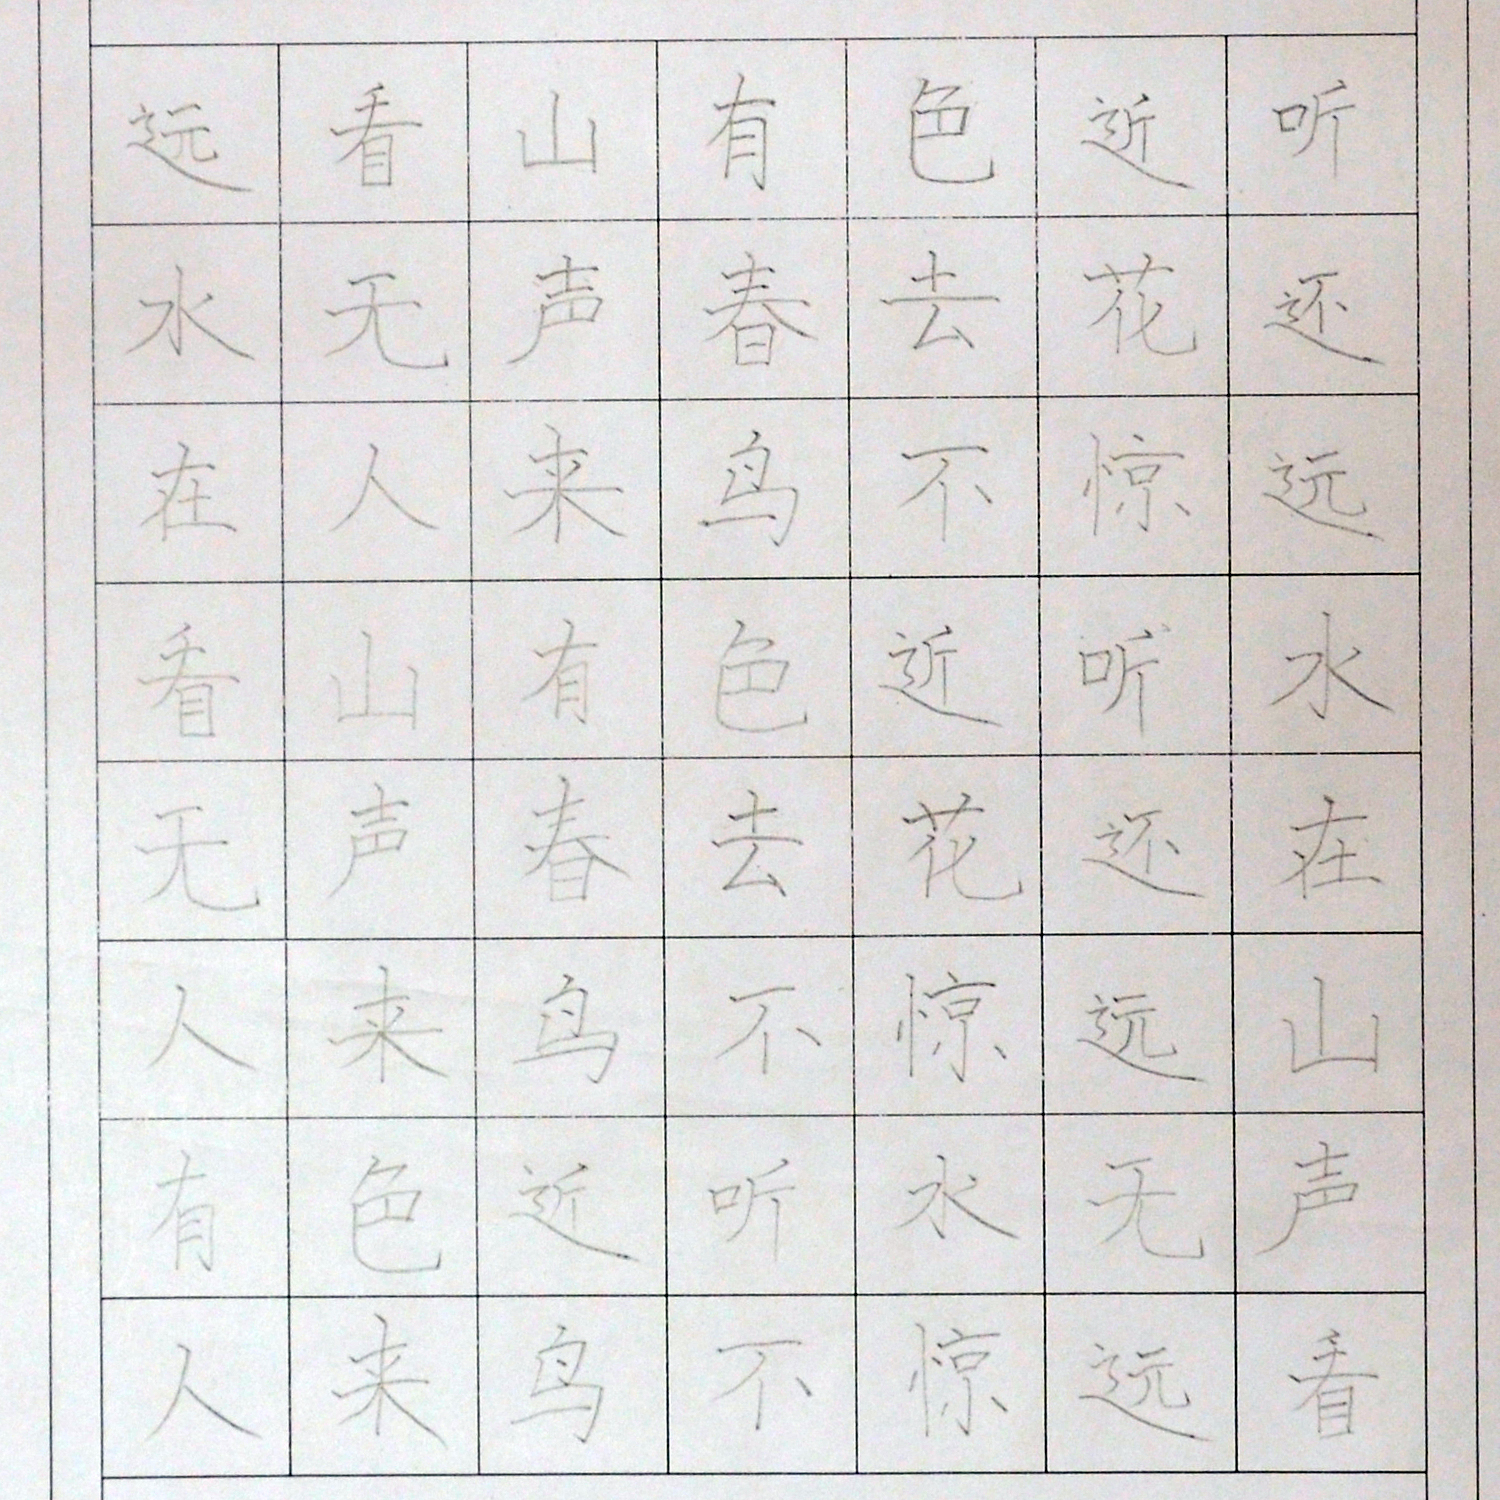 远看山有色近听
水无声春去花还
在人来鸟不惊远
看山有色近听水
无声春去花还在
人来鸟不惊远山
有色近听水无声
人来鸟不惊远看